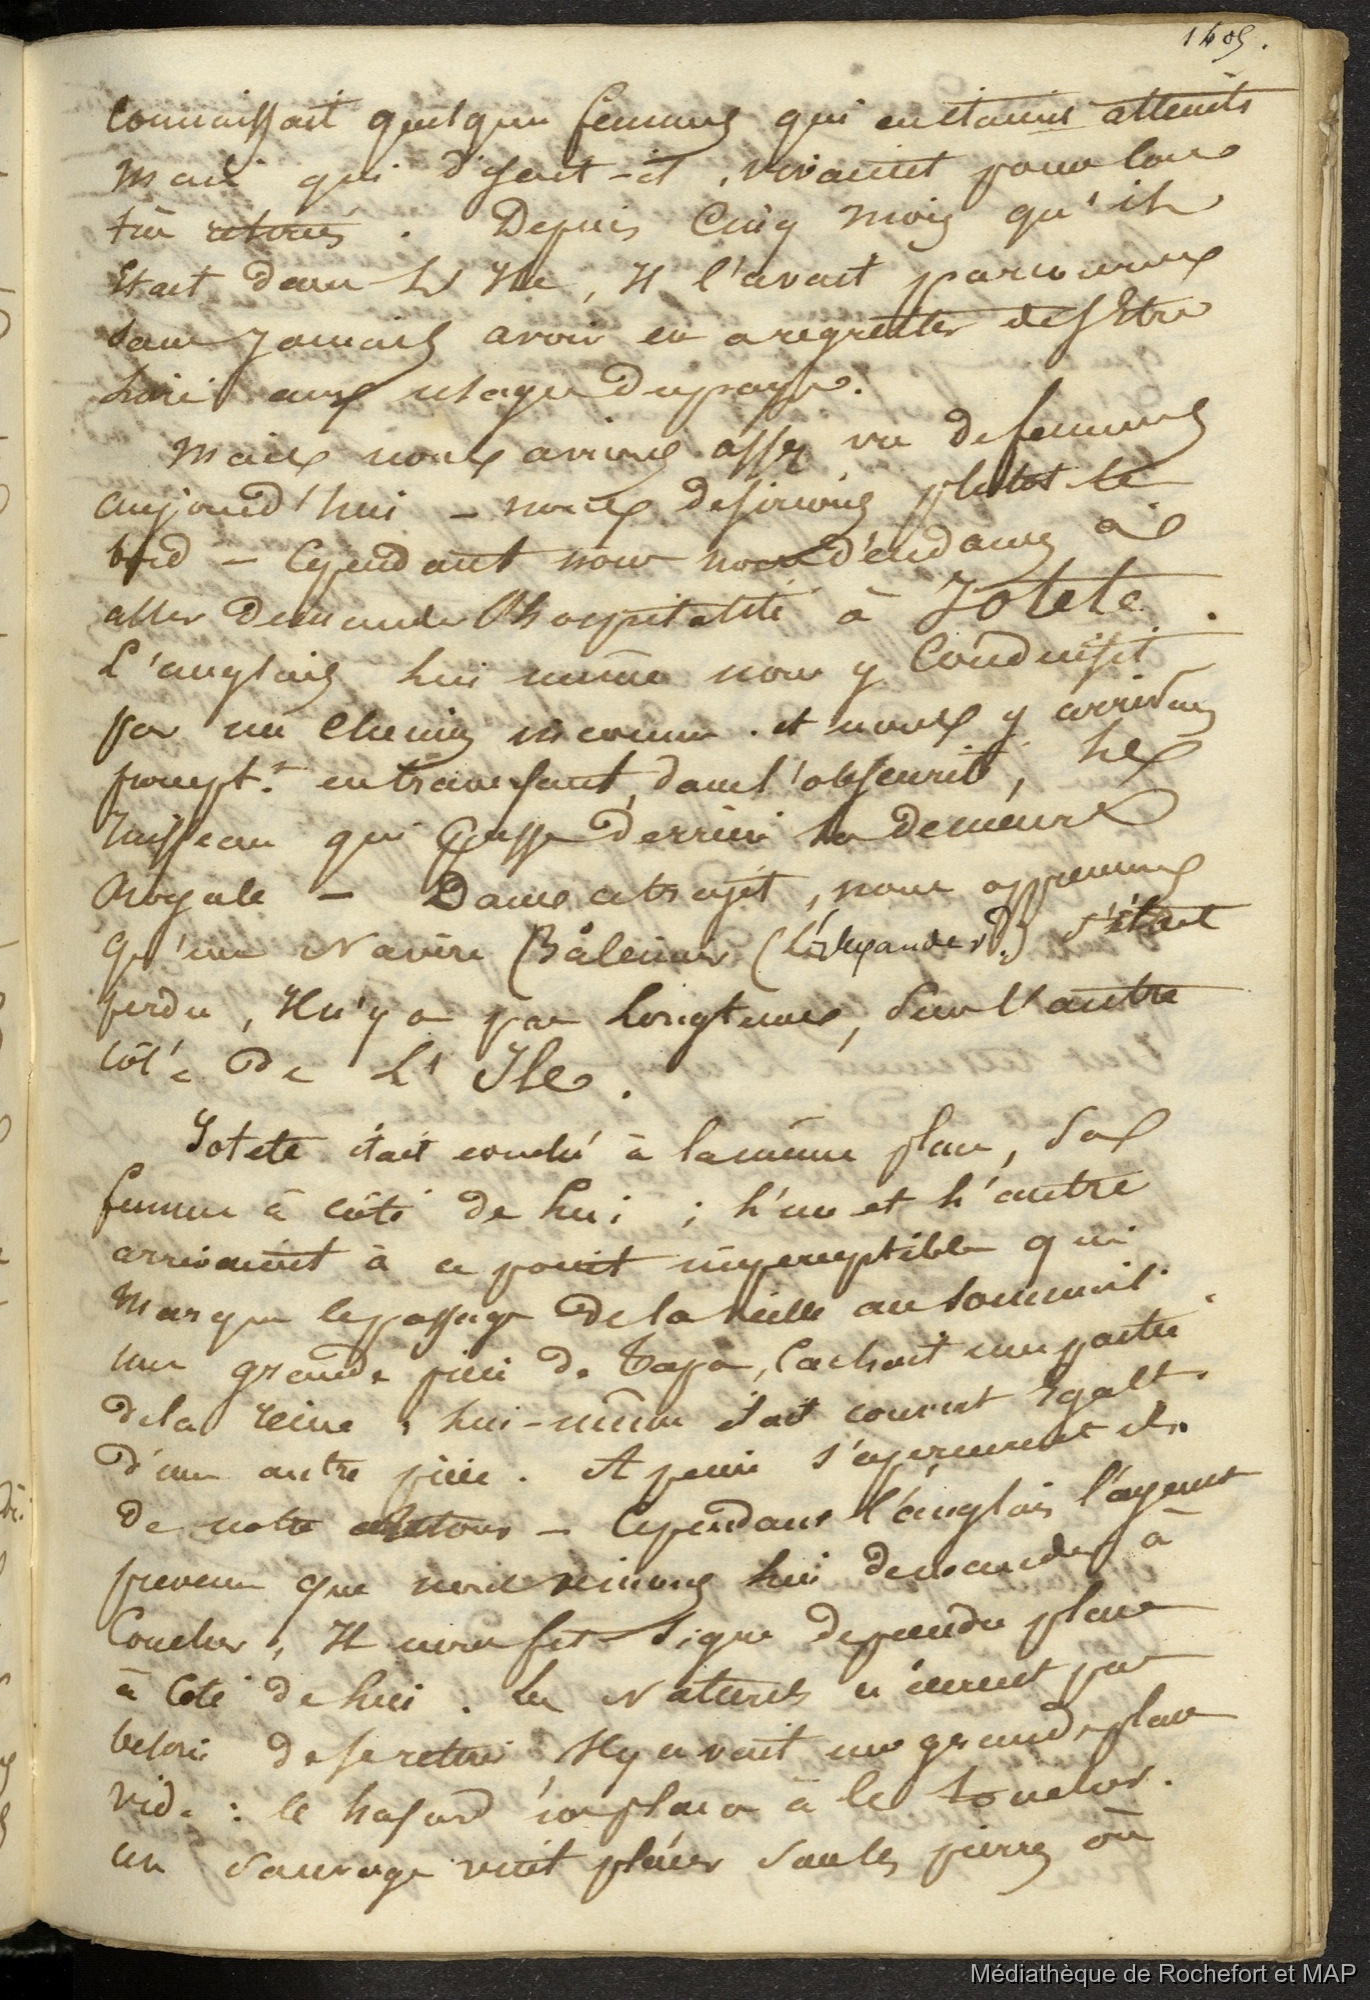 1405.
Connaissait quelques femmes qui en étaient atteints
Mais qui disait-il, vivaient pour lors
très retirés. Depuis Cinq Mois qu'il
Etait dans L'Ile, Il l'avait parcourue
sans Jamais avoir eu a regretter de s'Etre
livré aux usages du pays.
Mais nous avions assez vu de femmes
aujourd'hui - nous desirions plutot le
bord - Cependant nous nous d'endames à
aller demander l'hospitalité à Jotete.
L'anglais lui même nous y Conduisit
par un Chemin inconnu. et nous y arrivâmes
prompt.t en traversant, dans l'obscurité, le
ruisseau qui passe derrière la demeure
Royale - Dans ce trajet, nous apprimes
qu'un Navire Baleinier (L'Alexander) s'était
perdu, Il n'y a pas Longtemps, sur l'autre
Côté de L'Ile.
Jotete était couché à la même place, Sa
femme à côté de lui ; l'un et l'autre
arrivaient à ce point imperceptible qui
Marque le passage de la veille au Sommeil.
une grande pièce de Tapa, Cachait une partie
de la reine, lui-même était couvert Egalt.
D'une autre pièce. A peine s'aperçurent ils
de notre retour - Cependant l'anglais l'ayant
prevenu que nous venions lui demander à
Coucher, Il nous fit Signe de prendre place
à Coté de lui. Les Naturels n'eurent pas
besoin de se retirer Il y avait une grande place
vide : le hasard me plaça à le toucher.
un Sauvage vint placer sous les pierres où